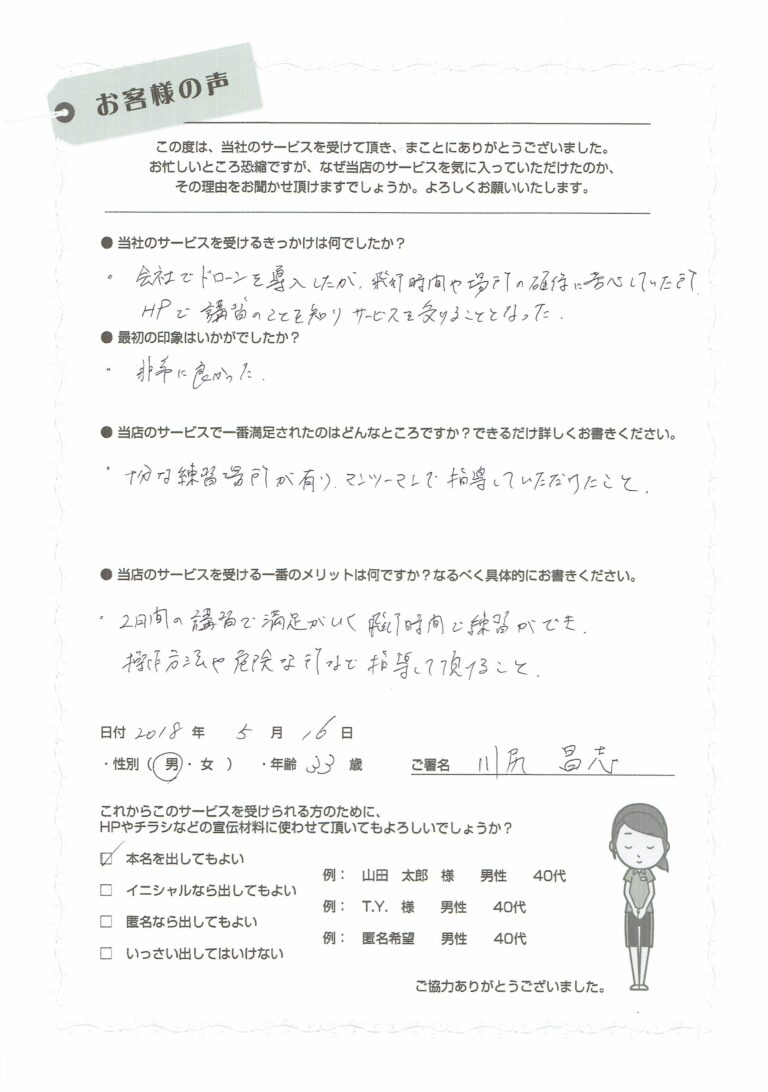 お客様の声
この度は、当社のサービスを受けて頂き、まことにありがとうございました。
お忙しいところ恐縮ですが、なぜ当店のサービスを気に入っていただけたのか、
その理由をお聞かせ頂けますでしょうか。よろしくお願いいたします。
● 当社のサービスを受けるきっかけは何でしたか？
・ 会社でドローンを導入したが、飛行時間や場所の確保に苦心していた所、
HPで講習のことを知りサービスを受けることとなった。
● 最初の印象はいかがでしたか？
・ 非常に良かった。
● 当店のサービスで一番満足されたのはどんなところですか？できるだけ詳しくお書きください。
・ 十分な練習場所が有り、マンツーマンで指導していただけたこと。
● 当店のサービスを受ける一番のメリットは何ですか？なるべく具体的にお書きください。
・ 2日間の講習で満足がいく飛行時間で練習ができ、
操作方法や危険な所など指導して頂けること。
日付 2018 年 5 月 16 日
・性別（ 男 ・ 女 ） ・年齢 33 歳 ご署名 川尻 昌志
これからこのサービスを受けられる方のために、
HPやチラシなどの宣伝材料に使わせて頂いてもよろしいでしょうか？
☑ 本名を出してもよい 例： 山田 太郎 様 男性 40代
□ イニシャルなら出してもよい 例： T.Y. 様 男性 40代
□ 匿名なら出してもよい 例： 匿名希望 男性 40代
□ いっさい出してはいけない
ご協力ありがとうございました。